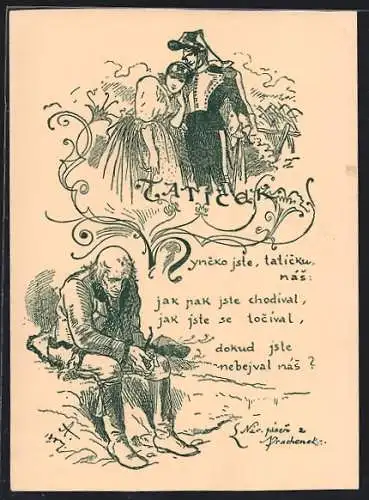 TATÍČEK
Nynčko jste, tatíčku,
náš:
jak pak jste chodíval,
jak jste se točíval,
dokud jste
nebejval náš?
Nár. píseň z
Prachenska